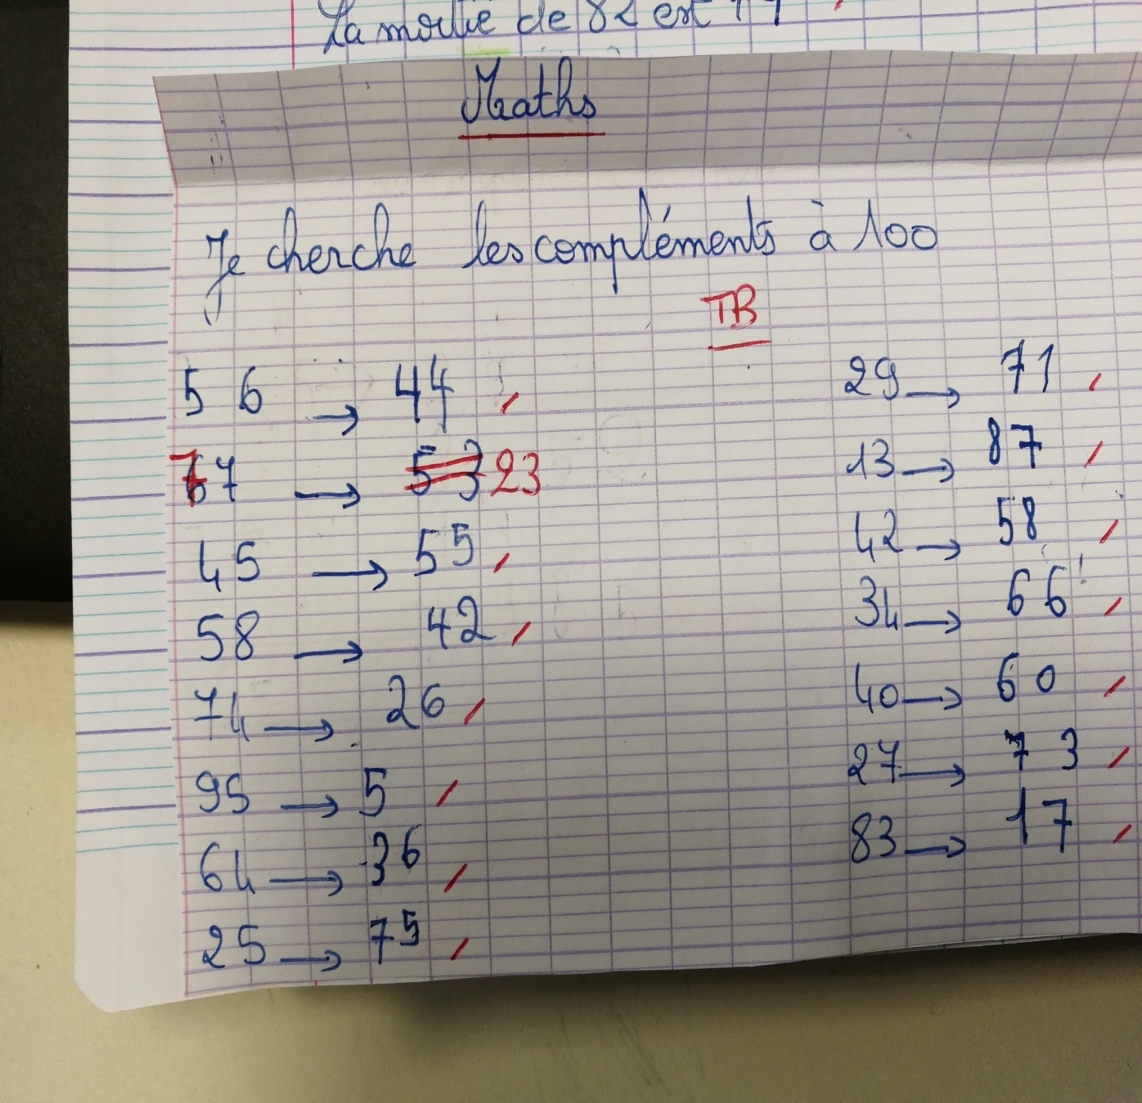 La moitié de 82 est
Maths
Je cherche les compléments à 100
TB
56 → 44
77 → 53 23
45 → 55
58 → 42
74 → 26
95 → 5
64 → 36
25 → 75
29 → 71
13 → 87
42 → 58
34 → 66
40 → 60
27 → 73
83 → 17